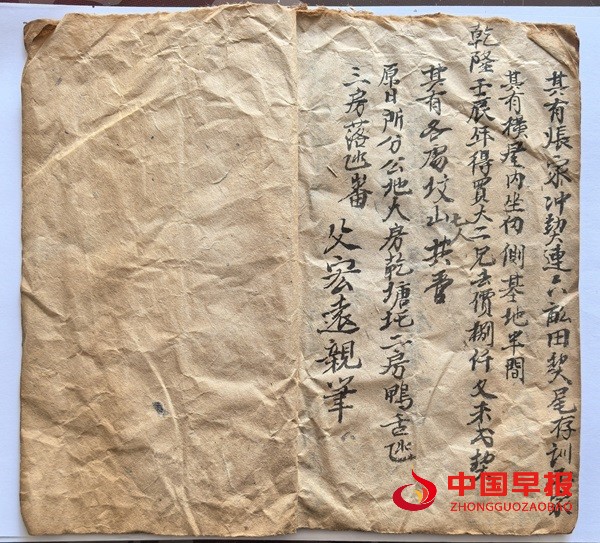 其有張家冲契連六畝田契尾存訓家
其有橫屋内坐向側基地半間
乾隆壬辰年得買大二兄去價捌仟文未代契
其有各處坟山七人共管
原日所分公地大房乾塘坵二房鴨舌坵
三房落坵畨
父宏遠親筆
中国早报
ZHONGGUOZAOBAO